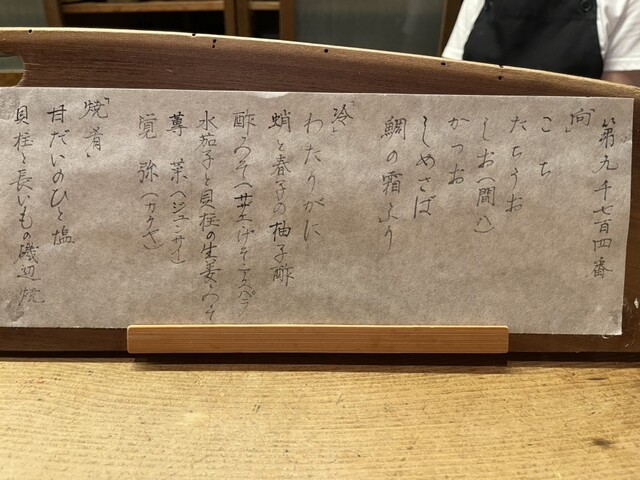 第九千七百四番
「向」
こち
たちうお
しお(間八)
かつお
しめさば
鯛の霜ふり
「冷」
わたりがに
蛸と春子の柚子酢
水茄子と貝柱の生姜みそ
蓴菜(ジュンサイ)
覚弥(カクヤ)
「焼肴」
甘だいのひと塩
貝柱と長いもの磯辺焼